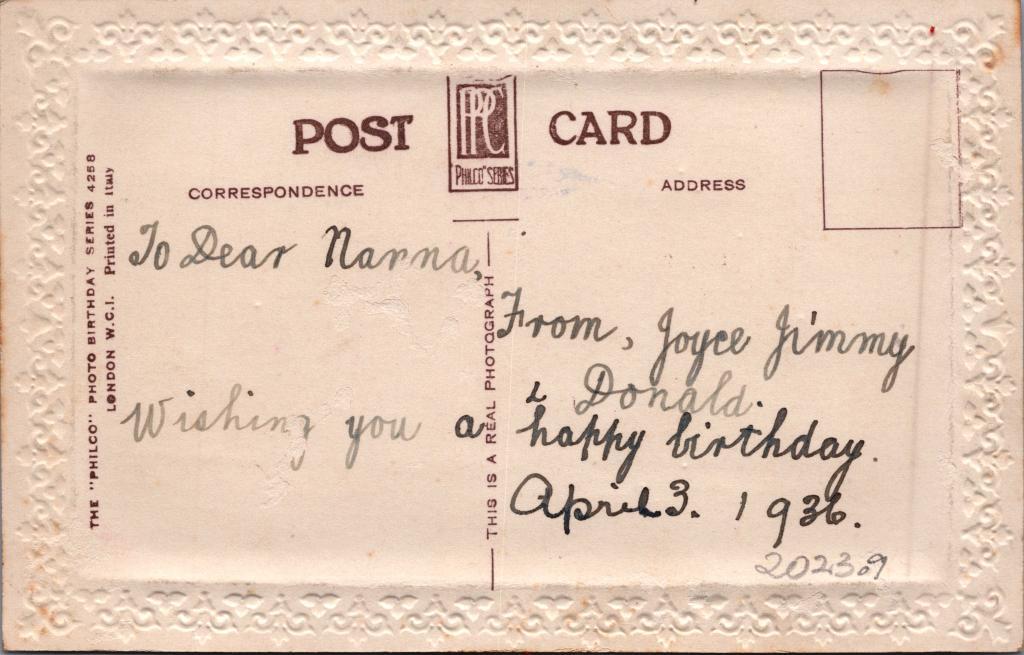 POST CARD
PPC
"PHILCO" SERIES
CORRESPONDENCE
ADDRESS
THE "PHILCO" PHOTO BIRTHDAY SERIES 4258
LONDON W.C.I. Printed in Italy
THIS IS A REAL PHOTOGRAPH
To Dear Nanna,
From, Joyce Jimmy
& Donald.
Wishing you a happy birthday.
April 3. 1936.
20239